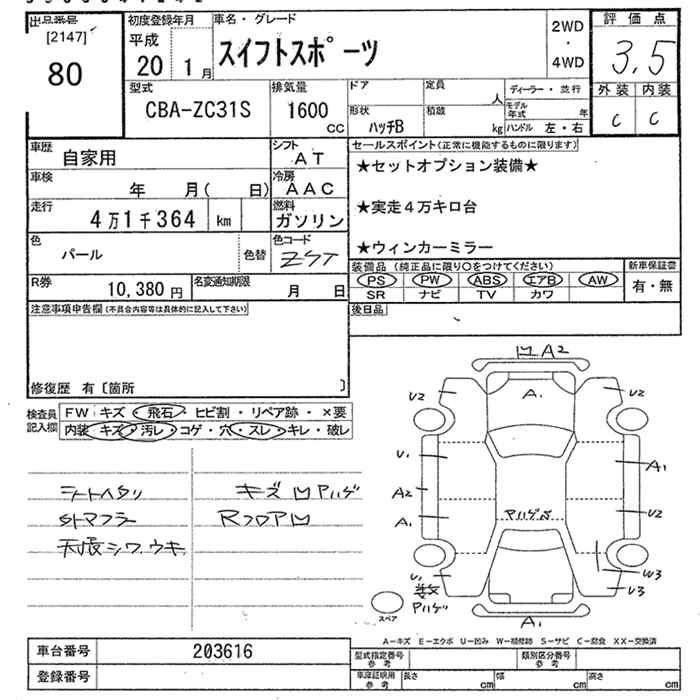 出品番号
[2147]
80
初度登録年月
平成
20 1月
車名・グレード
スイフトスポーツ
2WD
・
4WD
評価点
3.5
型式
CBA-ZC31S
排気量
1600
cc
ドア
定員
人
形状
ハッチB
積載
kg
ディーラー・並行
モデル年式
年
ハンドル 左・右
外装 内装
C C
車歴
自家用
シフト
AT
車検
年 月( 日)
冷房
AAC
走行
4万1千364 km
燃料
ガソリン
色
パール
色替
色コード
ZST
R券
10,380円
名変通知期限
月 日
セールスポイント(正常に機能するものに限ります)
★セットオプション装備★
★実走4万キロ台
★ウィンカーミラー
装備品(純正品に限り○をつけてください)
PS PW ABS エアB AW
SR ナビ TV カワ
新車保証書
有・無
後日品
注意事項申告欄(不具合内容等は具体的に記入して下さい)
修復歴 有〔箇所 〕
検査員記入欄
FW キズ・飛石・ヒビ割・リペア跡・×要
内装 キズ・汚レ・コゲ・穴・スレ・キレ・破レ
シートヘタリ
外マフラー
天張シワ、ウキ
キズ凹ハゲ
Rフロア凹
凹A2
A1
U2
U2
U1
A1
A2
A1
U2
U1
W3
U3
A1
スペア
A-キズ E-エクボ U-凹み W-補修跡 S-サビ C-腐食 XX-交換済
車台番号
203616
登録番号
型式指定番号
参考
類別区分番号
参考
車庫証明用
参考
長さ
cm
幅
cm
高さ
cm